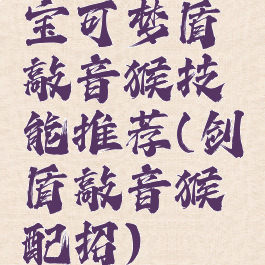 宝可梦盾
敲音猴技
能推荐(剑
盾敲音猴
配招)